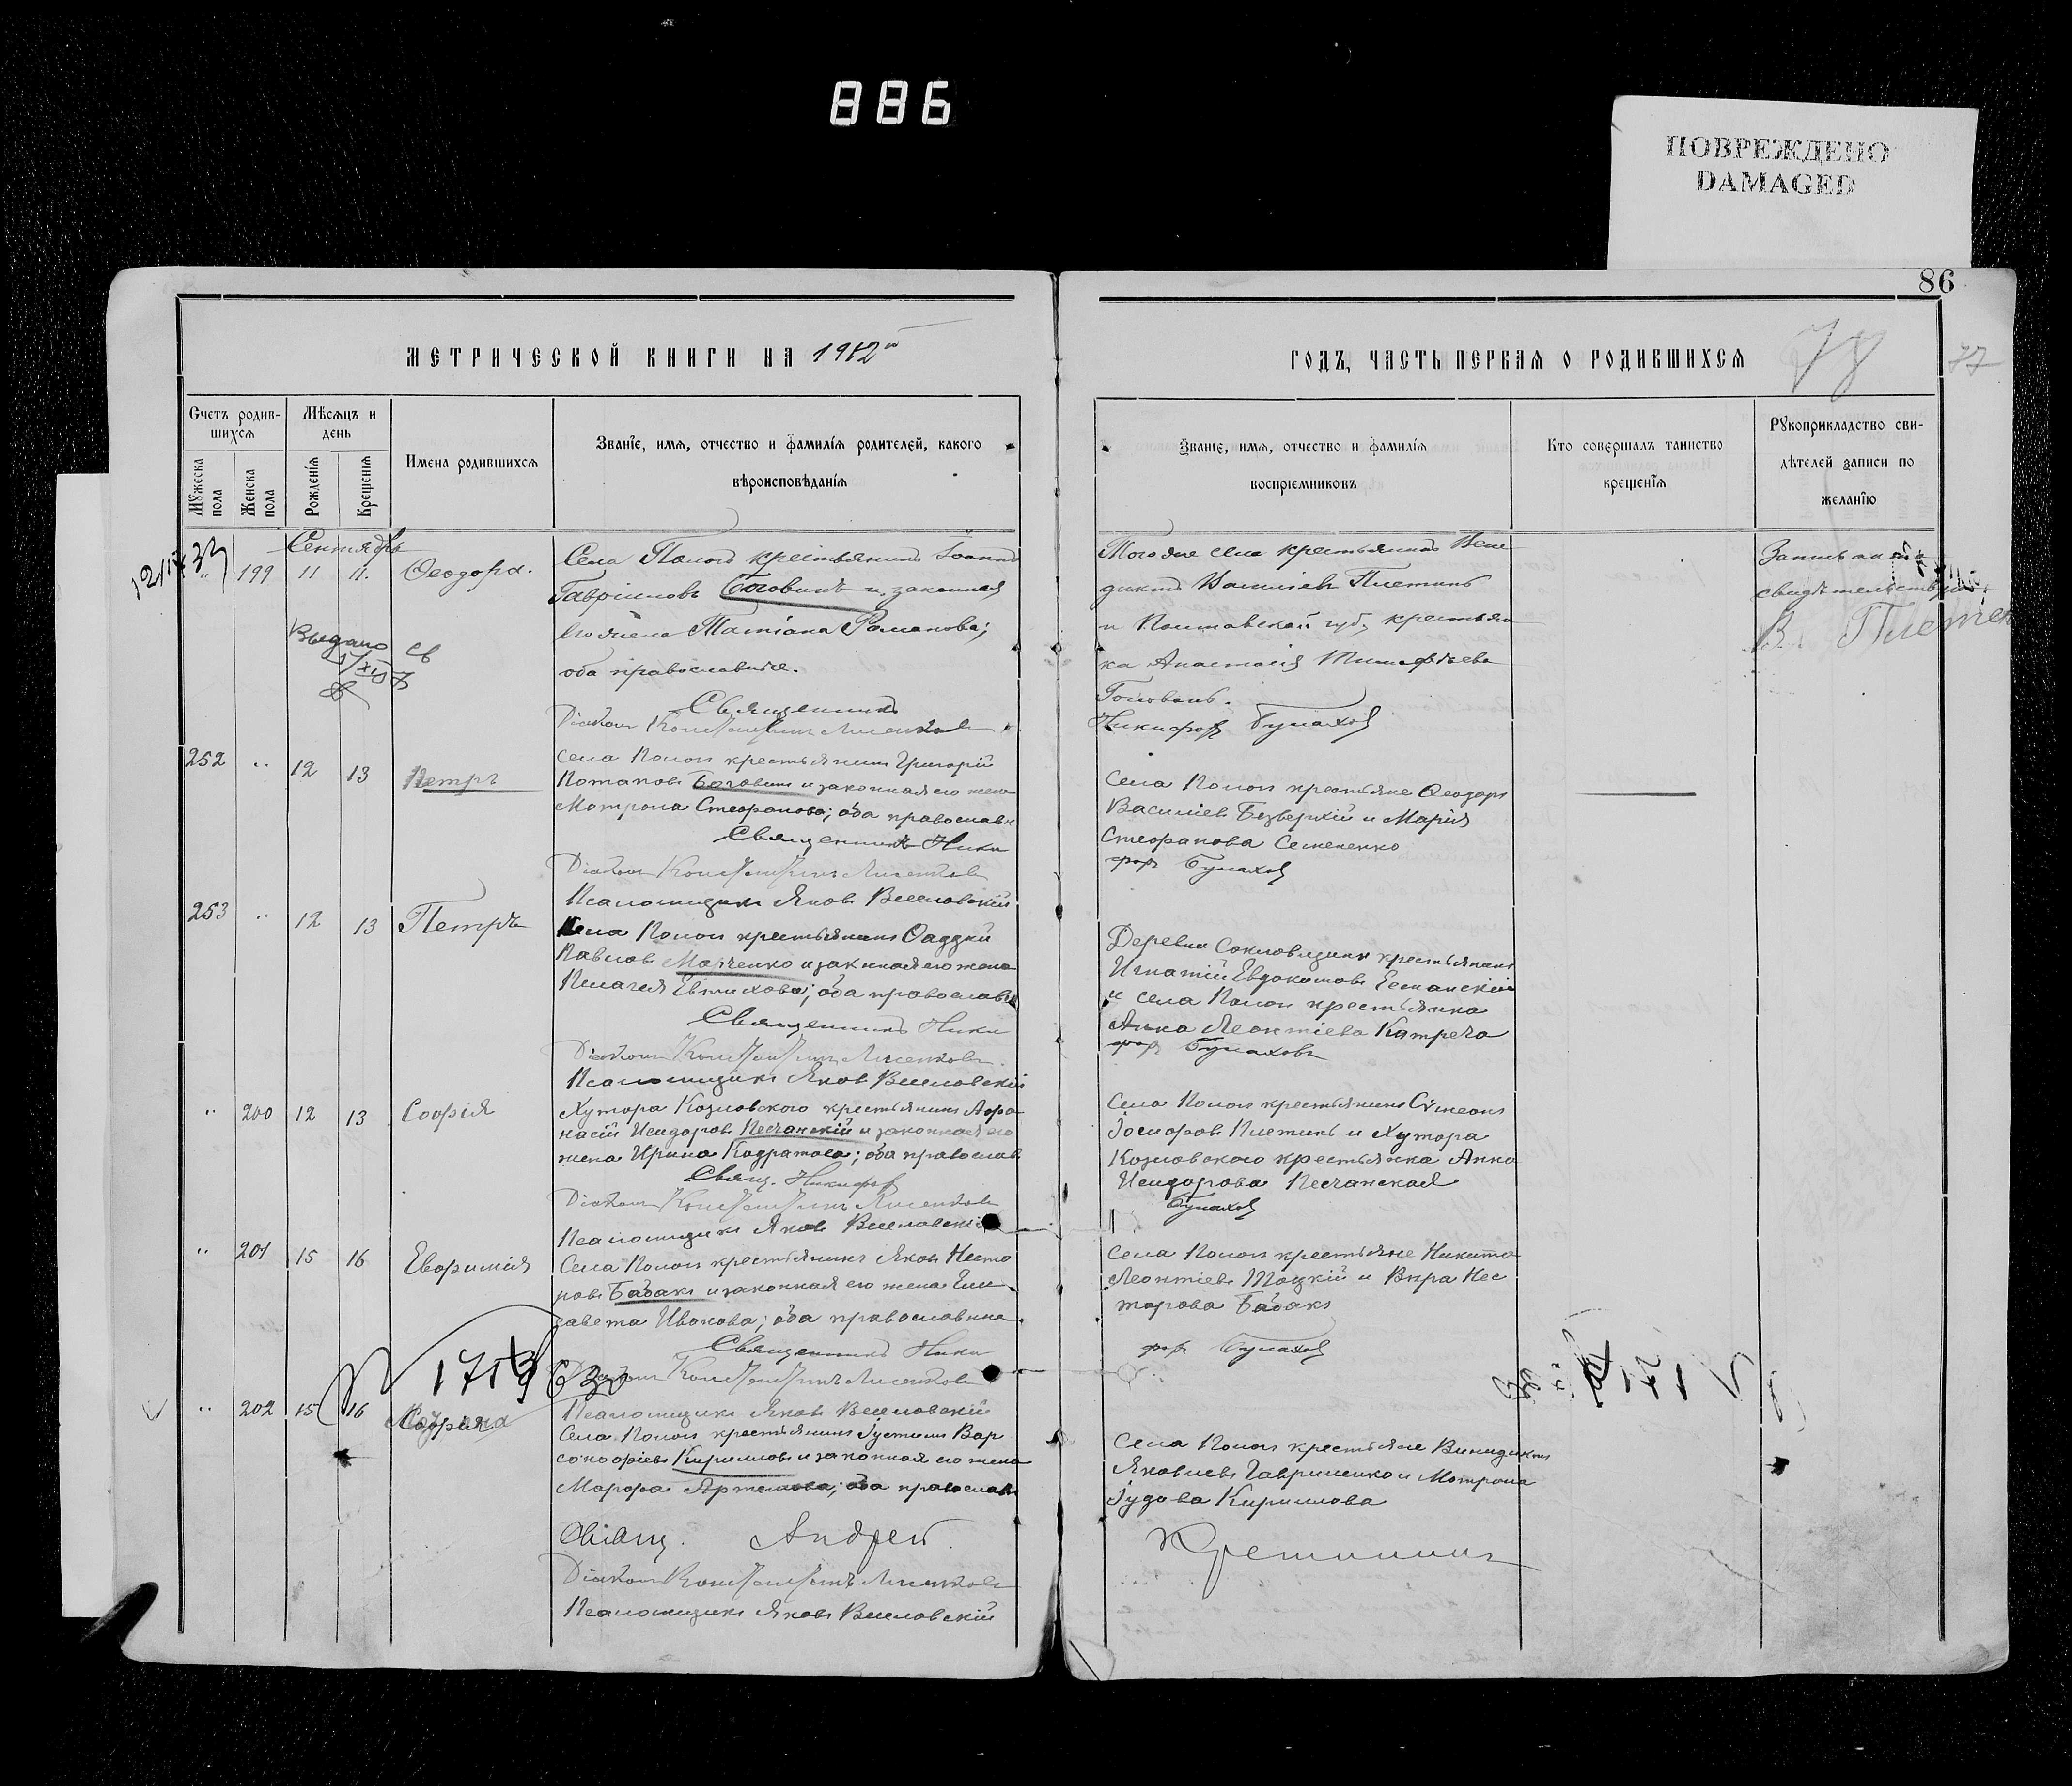 886
ПОВРЕЖДЕНО
DAMAGED
86
МЕТРИЧЕСКОЙ КНИГИ НА 1912
ГОДЪ, ЧАСТЬ ПЕРВАЯ О РОДИВШИХСЯ
78
77
Счетъ родив-
шихся
Мѣсяцъ и
день
Мужеска
пола
Женска
пола
Рожденія
Крещенія
Имена родившихся
Званіе, имя, отчество и фамилія родителей, какого
вѣроисповѣданія
Званіе, имя, отчество и фамилія
воспріемниковъ
Кто совершалъ таинство
крещенія
Рукоприкладство сви-
дѣтелей записи по
желанію
Сентябрь
199 11 11. Ѳеодора.
Села Полог крестьянинъ Іоаннъ
Гавріиловъ Боговинъ и законная
его жена Татіана Романова;
оба православные.
Священникъ
Діаконъ Константинъ Лисенковъ
Выдано св
Того же села крестьянинъ Вене
диктъ Василіевъ Плетинь
и Полтавской губ., крестьян
ка Анастасія Тимофѣева
Головань.
Никифоръ Булаховъ
252 " 12 13 Петръ
Села Полог крестьянинъ Григорій
Потаповъ Боговинъ и законная его жена
Матрона Стефанова; оба православн
Священникъ Ники
Діаконъ Константинъ Лисенковъ
Псаломщикъ Яковъ Веселовскій
Села Полог крестьяне Ѳеодоръ
Василіевъ Безверхій и Марія
Стефанова Семененко
форъ Булаховъ
253 " 12 13 Петръ
Села Полог крестьянинъ Ѳаддей
Павловъ Марченко и законная его жена
Пелагея Евтихова; оба православн
Священникъ Ники
Діаконъ Константинъ Лисенковъ
Псаломщикъ Яковъ Веселовскій
крестьянинъ
Игнатій Евдокимовъ
и села Полог крестьянка
Анна Леонтіева Катреча
форъ Булаховъ
" 200 12 13 Софія
Хутора Козловского крестьянинъ Афа
насій Исидоровъ Песчанскій и законная его
жена Ирина Кодратова; оба православ
Свящ. Никифоръ
Діаконъ Константинъ Лисенковъ
Псаломщикъ Яковъ Веселовскій
Села Полог крестьянинъ Сѵмеонъ
Іосифовъ Плетинь и Хутора
Козловского крестьянка Анна
Исидорова Песчанская
Булаховъ
" 201 15 16 Евфимія
Села Полог крестьянинъ Яковъ Несто
ровъ Бабакъ и законная его жена Ели
завета Иванова; оба православные.
Священникъ Ники
Діаконъ Константинъ Лисенковъ
Псаломщикъ Яковъ Веселовскій
Села Полог крестьяне Никита
Леонтіевъ Тоцкій и Вѣра Нес
торова Бабакъ
форъ Булаховъ
" 202 15 16 Софія
Села Полог крестьянинъ Іустинъ Вар
сонофіевъ Кирилловъ и законная его жена
Марфа Артемова; оба православн
Свящ. Андрей
Діаконъ Константинъ Лисенковъ
Псаломщикъ Яковъ Веселовскій
Села Полог крестьяне Венедиктъ
Яковлевъ Гавриленко и Матрона
Іудова Кириллова